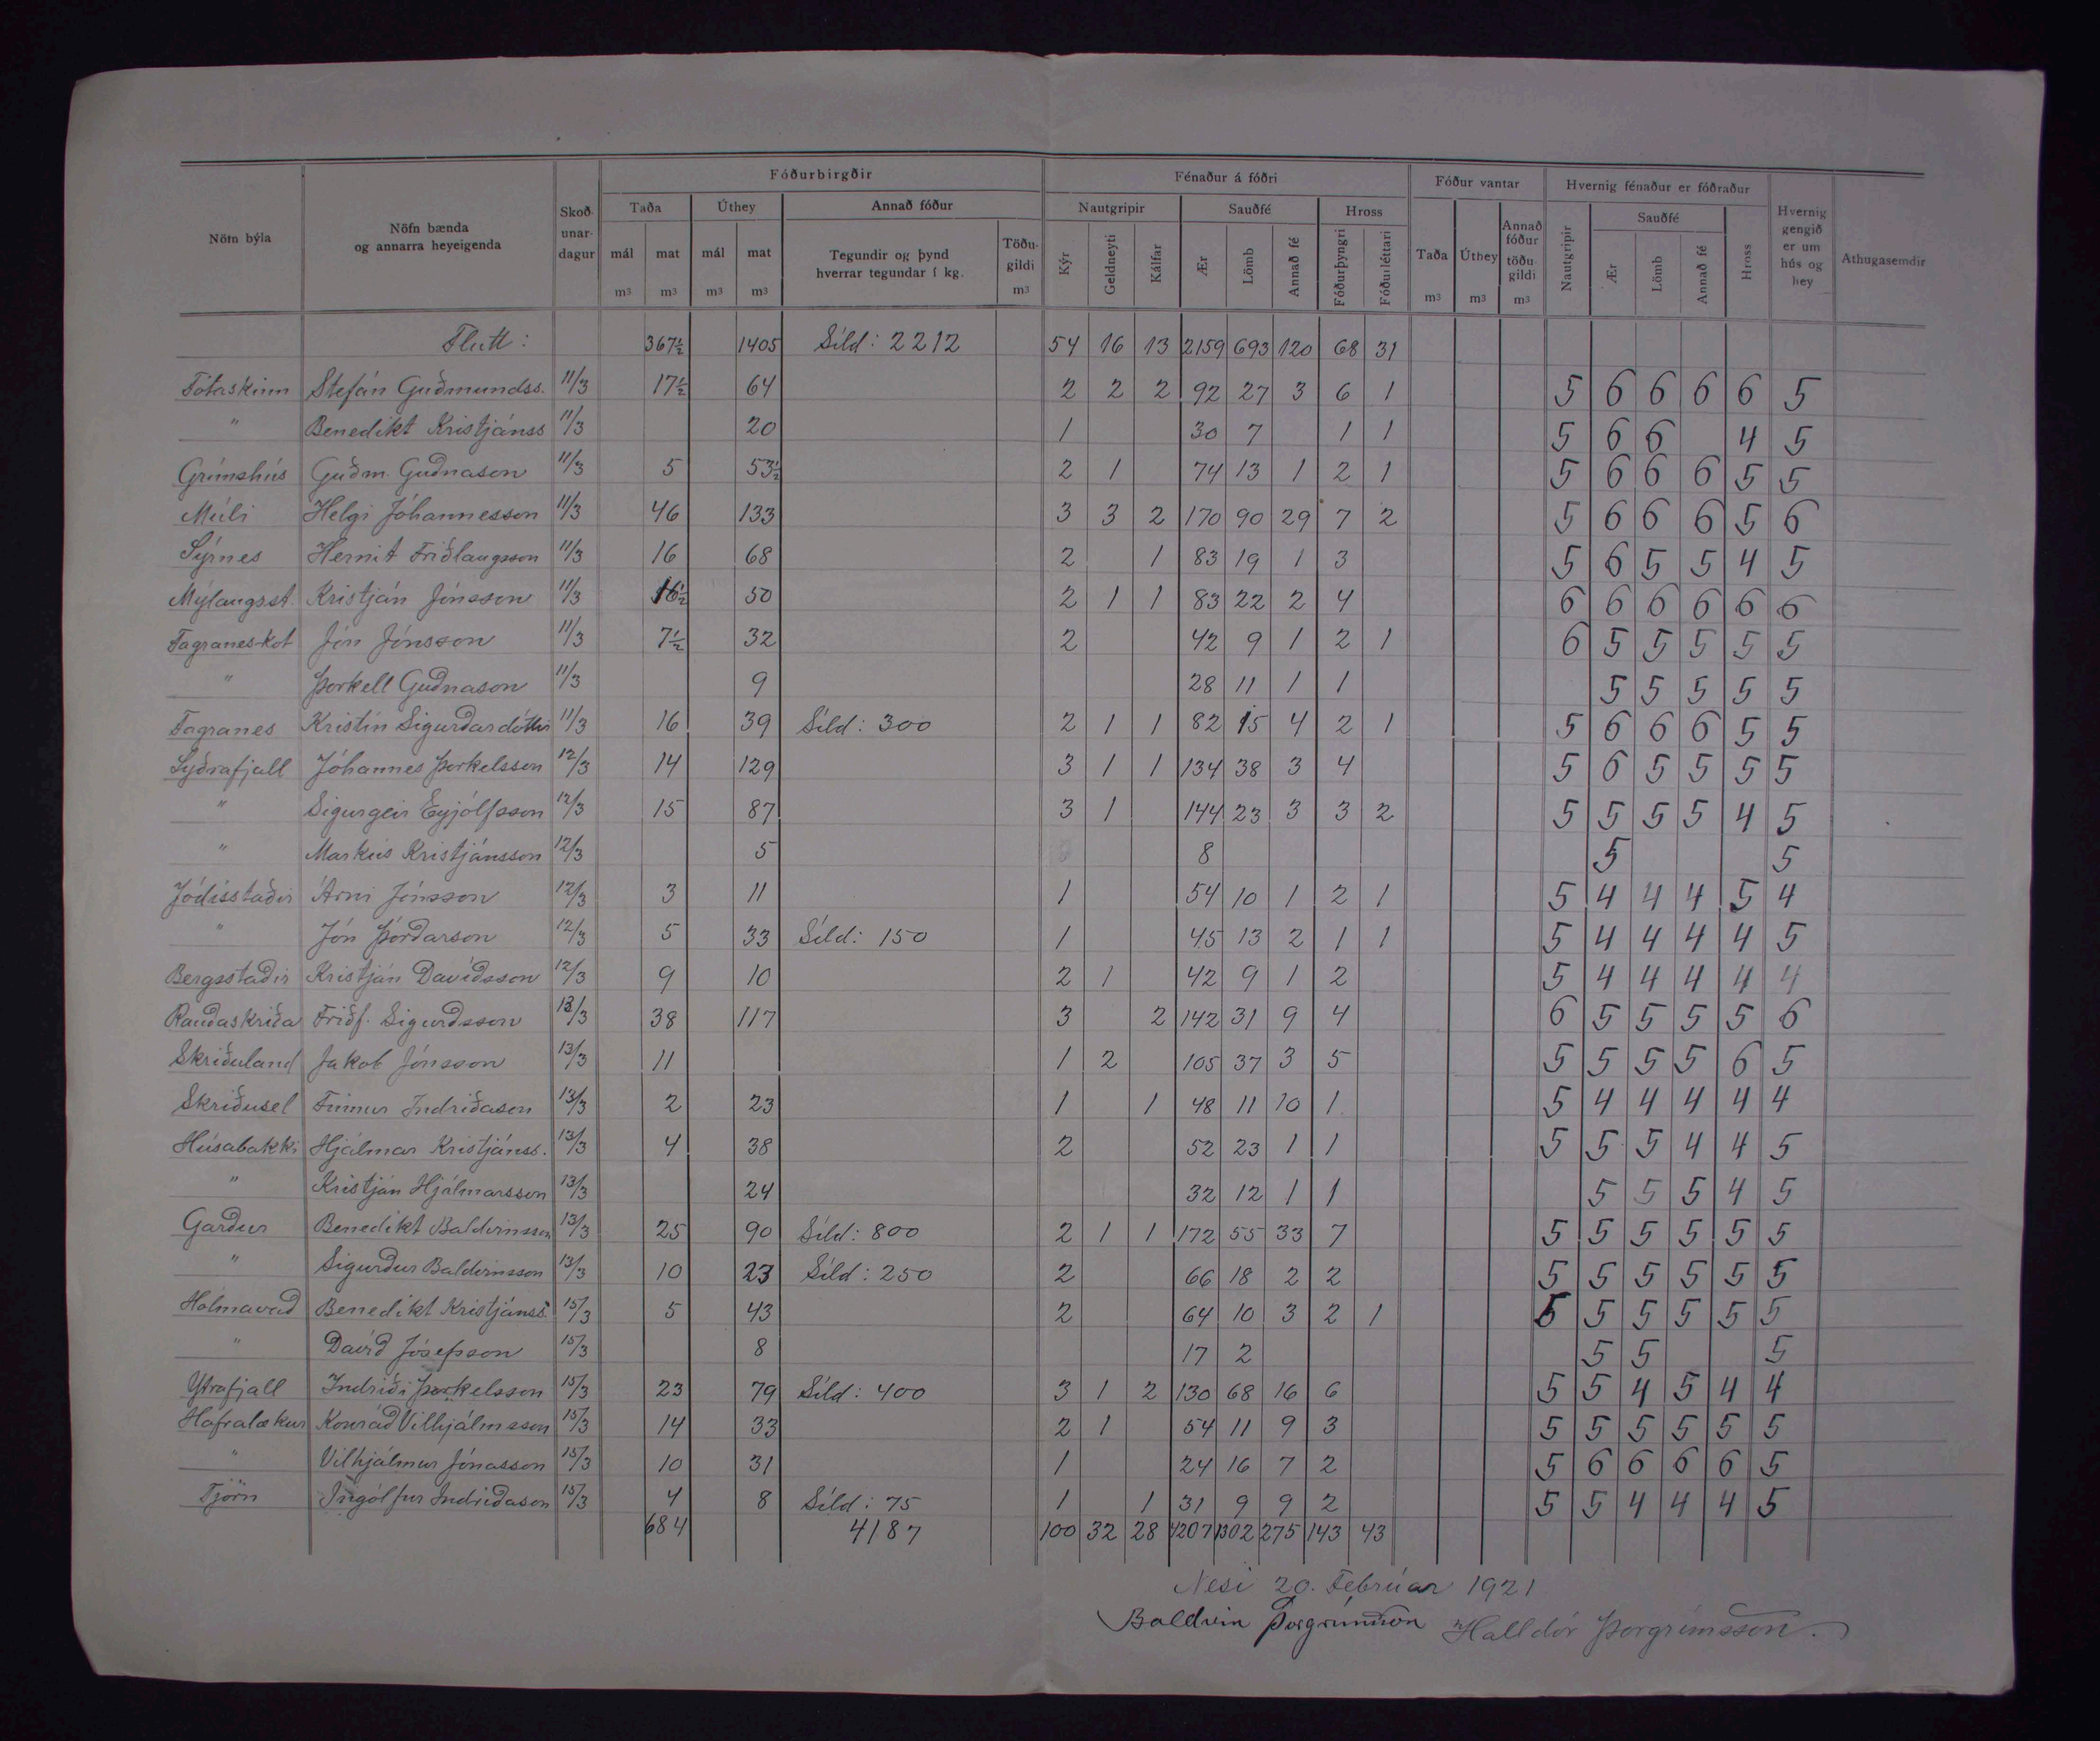 Fóðurbirgðir Fénaður á fóðri Fóður vantar Hvernig fénaður er fóðraður
Nöfn býla Nöfn bænda og annarra heyeigenda Skoðunardagur Taða Úthey Annað fóður Nautgripir Sauðfé Hross Taða Úthey Annað fóður töðugildi Nautgripir Sauðfé Hross Hvernig gengið er um hús og hey Athugasemdir
mál mat mál mat Tegundir og þynd hverrar tegundar í kg. Töðugildi Kýr Geldneyti Kálfar Ær Lömb Annað fé Fóðurþyngri Fóðurléttari Ær Lömb Annað fé
m³ m³ m³ m³ m³ m³ m³ m³
Flutt: 367½ 1405 Síld: 2212 54 16 13 2159 693 120 68 31
Fótaskinn Stefán Guðmundss. 11/3 17½ 64 2 2 2 92 27 3 6 1 5 6 6 6 6 5
" Benedikt Kristjánss 11/3 20 1 30 7 1 1 5 6 6 4 5
Grímshús Guðm. Guðnason 11/3 5 53½ 2 1 74 13 1 2 1 5 6 6 6 5 5
Múli Helgi Jóhannesson 11/3 46 133 3 3 2 170 90 29 7 2 5 6 6 6 5 6
Sýrnes Hernit Friðlaugsson 11/3 16 68 2 1 83 19 1 3 5 6 5 5 4 5
Mýlaugsst. Kristján Jónsson 11/3 16½ 50 2 1 1 83 22 2 4 6 6 6 6 6 6
Fagranes-kot Jón Jónsson 11/3 7½ 32 2 42 9 1 2 1 6 5 5 5 5 5
" Þorkell Guðnason 11/3 9 28 11 1 1 5 5 5 5 5
Fagranes Kristín Sigurðardóttir 11/3 16 39 Síld: 300 2 1 1 82 15 4 2 1 5 6 6 6 5 5
Syðrafjall Jóhannes Þorkelsson 12/3 14 129 3 1 1 134 38 3 4 5 6 5 5 5 5
" Sigurgeir Eyjólfsson 12/3 15 87 3 1 144 23 3 3 2 5 5 5 5 4 5
" Markús Kristjánsson 12/3 5 8 5 5
Jódísstaðir Árni Jónsson 12/3 3 11 1 54 10 1 2 1 5 4 4 4 5 4
" Jón Þórðarson 12/3 5 33 Síld: 150 1 45 13 2 1 1 5 4 4 4 4 5
Bergsstaðir Kristján Davíðsson 12/3 9 10 2 1 42 9 1 2 5 4 4 4 4 4
Rauðaskriða Friðf. Sigurðsson 13/3 38 117 3 2 142 31 9 4 6 5 5 5 5 6
Skriðuland Jakob Jónsson 13/3 11 1 2 105 37 3 5 5 5 5 5 6 5
Skriðusel Finnur Indriðason 13/3 2 23 1 1 48 11 10 1 5 4 4 4 4 4
Húsabakki Hjálmar Kristjánss. 13/3 4 38 2 52 23 1 1 5 5 5 4 4 5
" Kristján Hjálmarsson 13/3 24 32 12 1 1 5 5 5 4 5
Garður Benedikt Baldvinsson 13/3 25 90 Síld: 800 2 1 1 172 55 33 7 5 5 5 5 5 5
" Sigurður Baldvinsson 13/3 10 23 Síld: 250 2 66 18 2 2 5 5 5 5 5 5
Hólmavað Benedikt Kristjánss. 15/3 5 43 2 64 10 3 2 1 5 5 5 5 5 5
" Davíð Jósefsson 15/3 8 17 2 5 5 5
Ytrafjall Indriði Þorkelsson 15/3 23 79 Síld: 400 3 1 2 130 68 16 6 5 5 4 5 4 4
Hafralækur Konráð Vilhjálmsson 15/3 14 33 2 1 54 11 9 3 5 5 5 5 5 5
" Vilhjálmur Jónasson 15/3 10 31 1 24 16 7 2 5 6 6 6 6 5
Tjörn Ingólfur Indriðason 15/3 4 8 Síld: 75 1 1 31 9 9 2 5 5 4 4 4 5
684 4187 100 32 28 4207 1302 275 143 43
Nesi 20. Febrúar 1921
Baldvin Þorgrímsson Halldór Þorgrímsson.